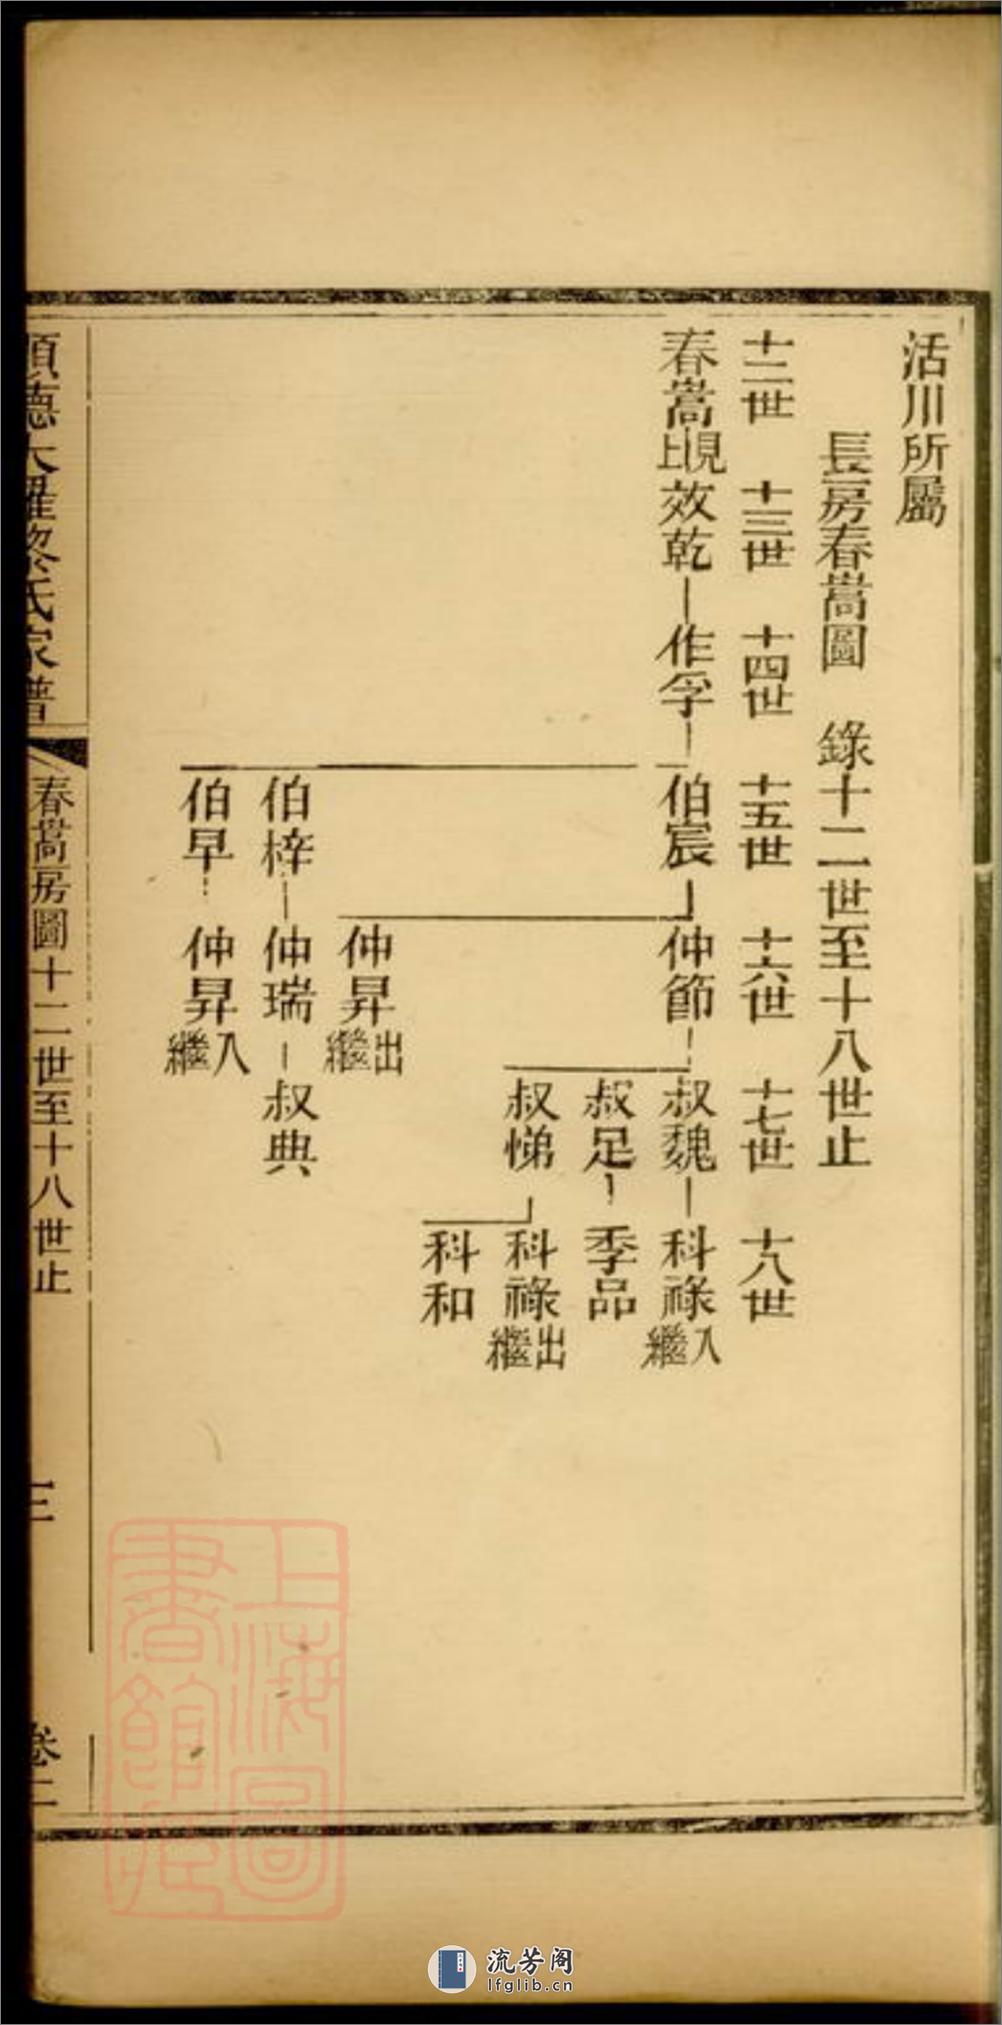 活川所屬
長房春嵩圖 錄十二世至十八世止
十二世 十三世 十四世 十五世 十六世 十七世 十八世
春嵩 效乾 作孚 伯宸 仲節 叔魏 科祿 入繼
叔足 季品
叔悌 科祿 出繼
科和
仲昇 出繼
伯梓 仲瑞 叔典
伯早 仲昇 入繼
順德大羅黎氏家譜
春嵩房圖十二世至十八世止
三
卷二
上海圖書館藏
流芳阁
lfglib.cn